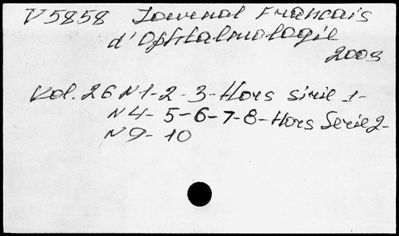 V5858 Journal Francais
d'Ophtalmologie
2003
Vol. 26 N1-2-3-Hors série 1-
N4-5-6-7-8-Hors Serie 2-
N9-10